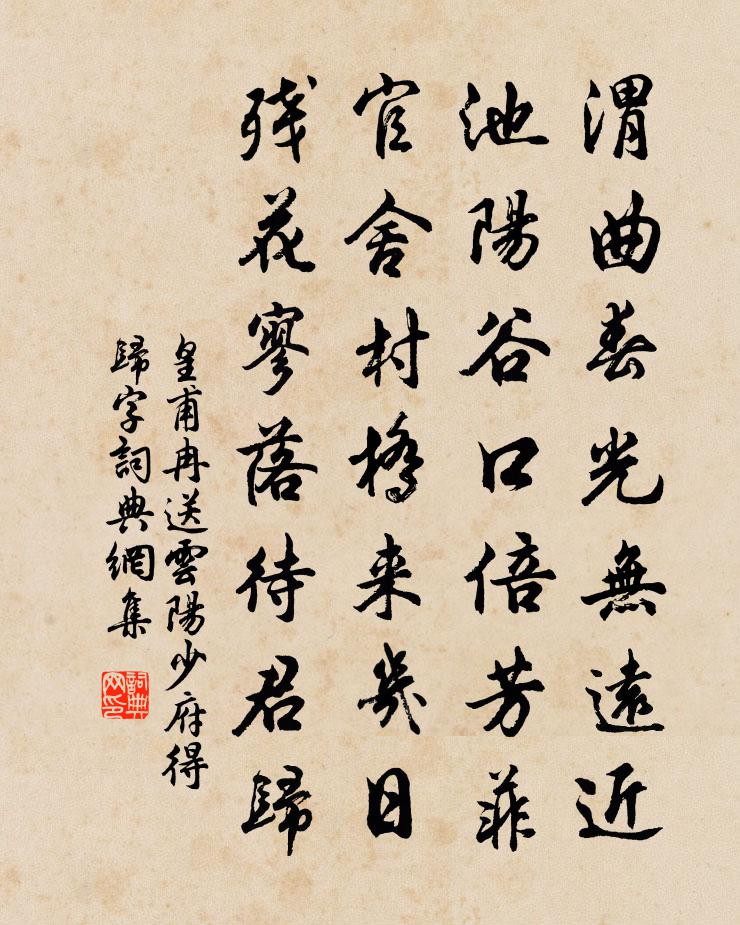 渭曲春光無遠近
池陽谷口倍芳菲
官舍村橋来幾日
残花寥落待君歸
皇甫冉送雲陽少府得
歸字詞典網集
詞典
网印